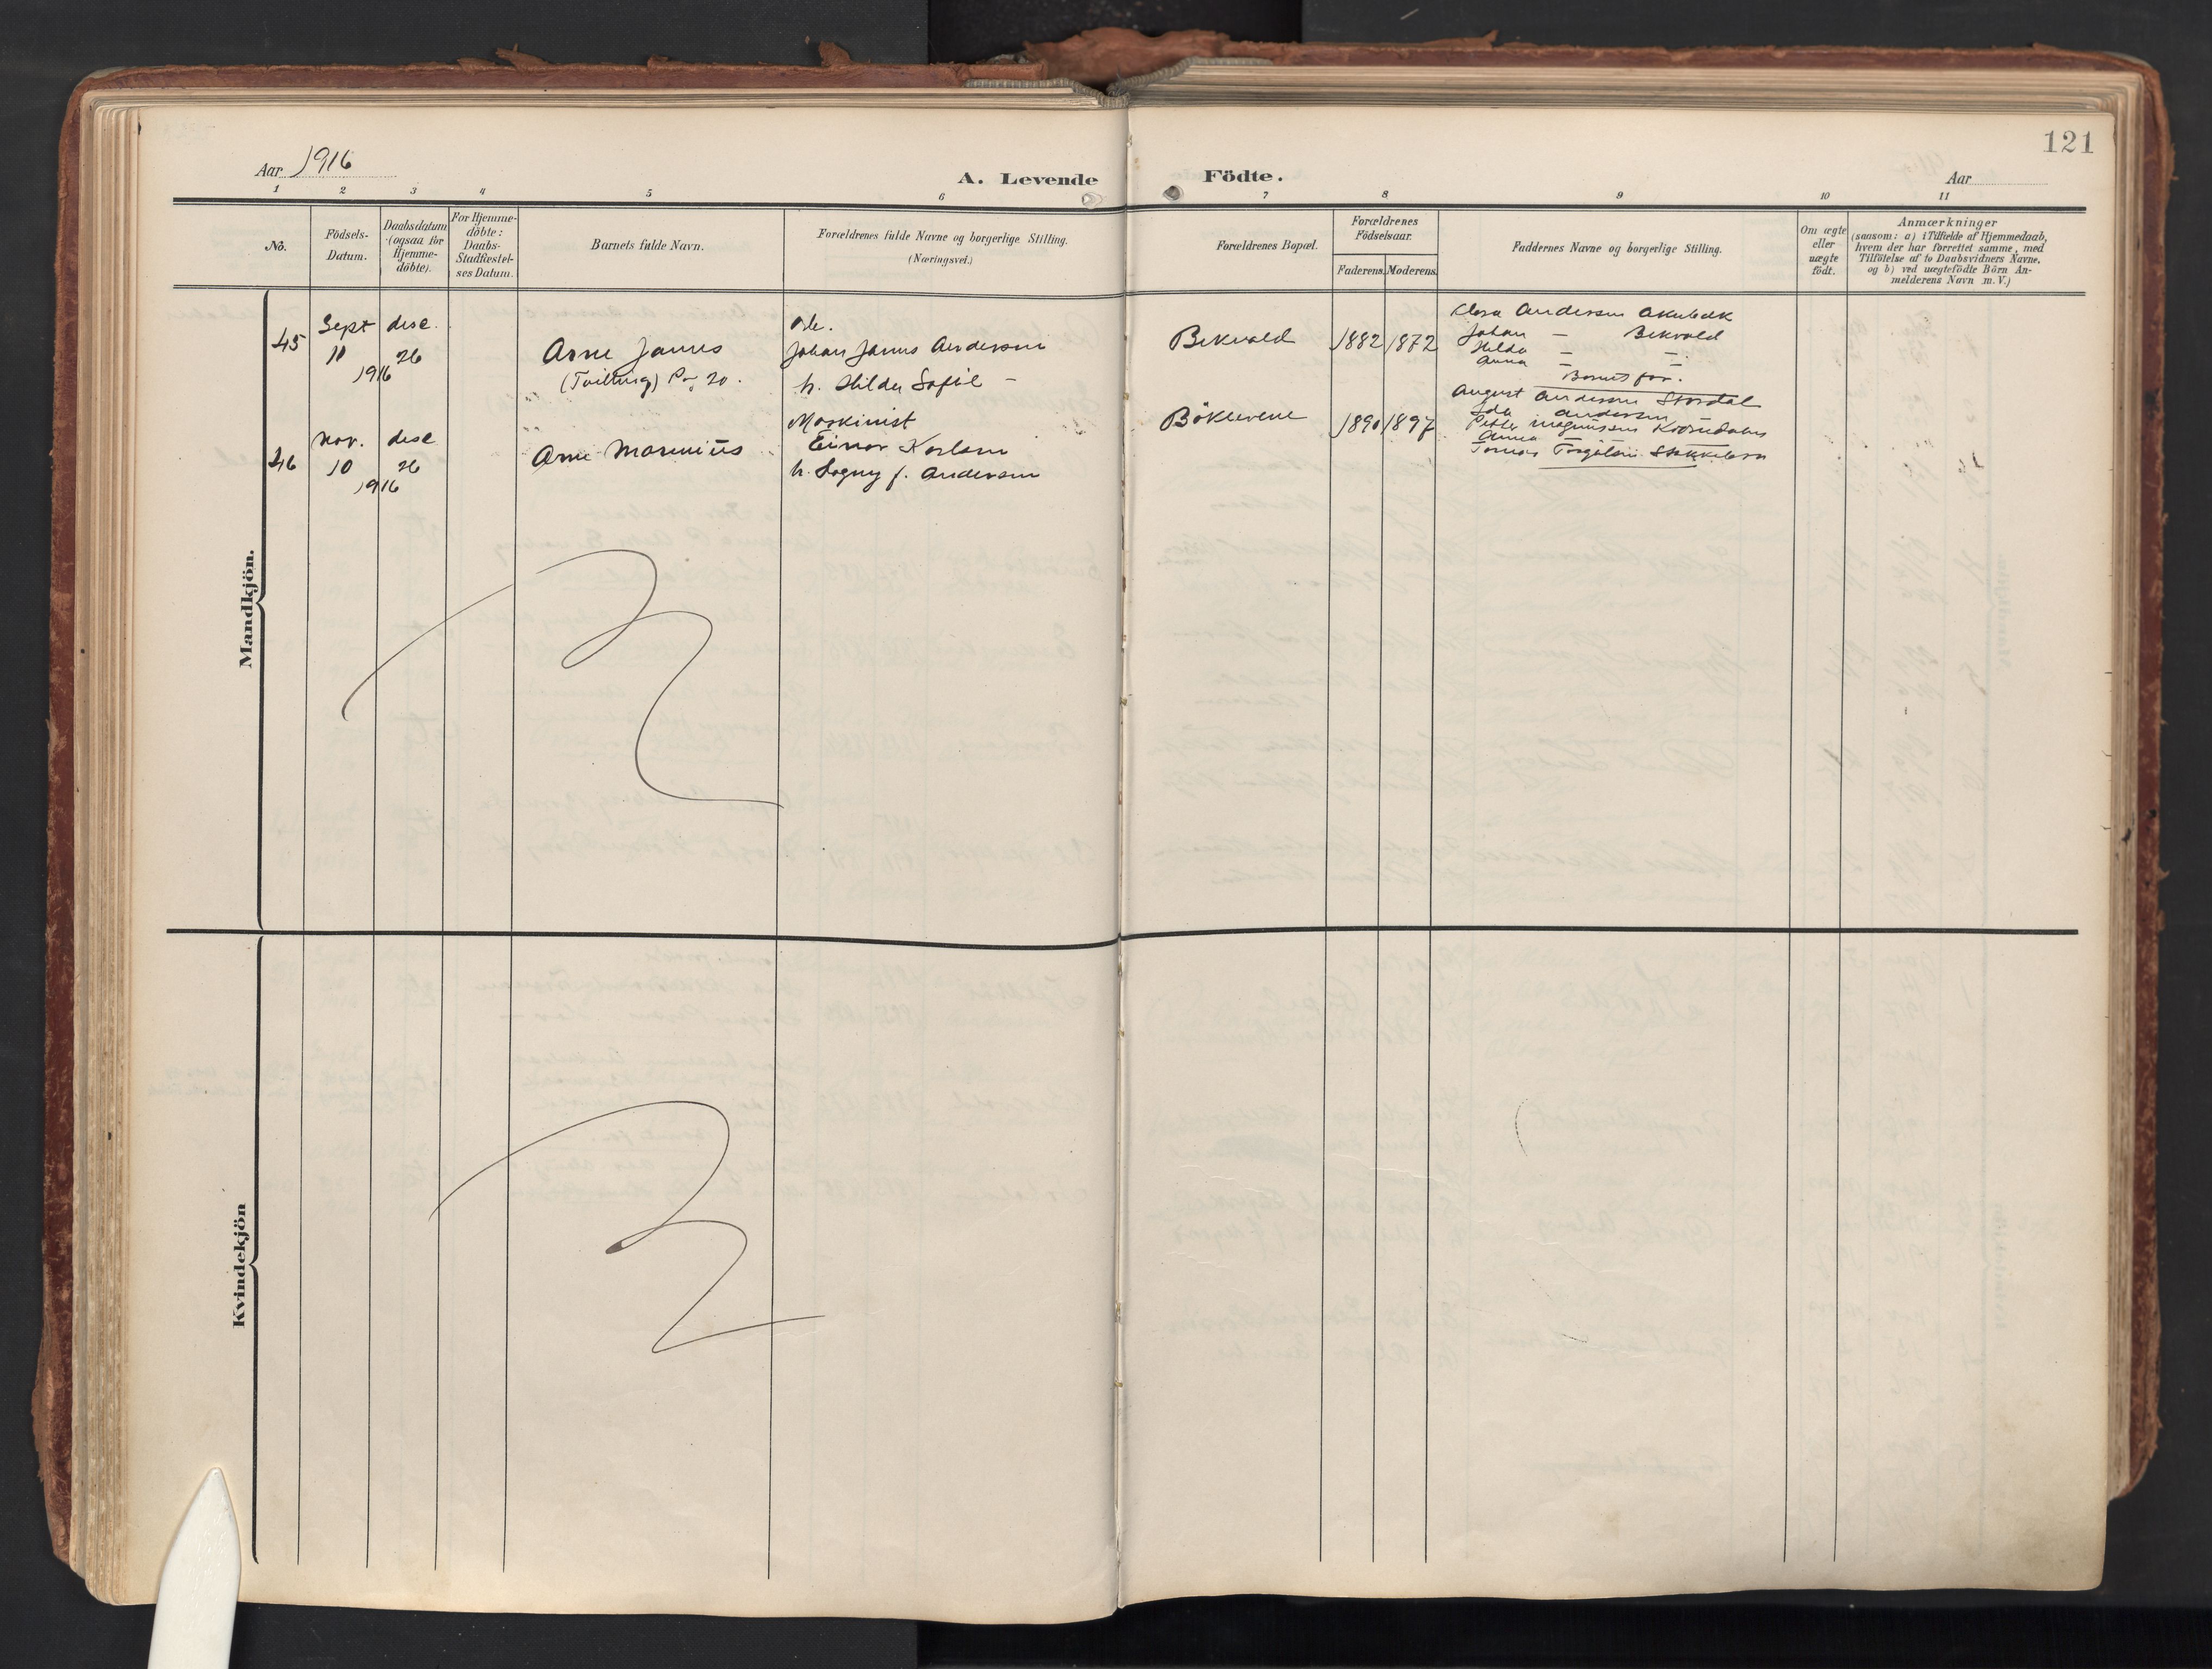 121
Aar 1916
A. Levende Födte.
Aar
1 2 3 4 5 6 7 8 9 10 11
No.
Födsels-
Datum.
Daabsdatum
(ogsaa for
Hjemme-
döbte).
For Hjemme-
döbte:
Daabs-
Stadfæstel-
ses Datum.
Barnets fulde Navn.
Forældrenes fulde Navne og borgerlige Stilling.
(Næringsvei.)
Forældrenes Bopæl.
Forældrenes
Födselsaar.
Faderens. Moderens.
Faddernes Navne og borgerlige Stilling.
Om ægte
eller
uægte
födt.
Anmærkninger
(saasom: a) i Tilfælde af Hjemmedaab,
hvem der har forrettet samme, med
Tilföielse af to Daabsvidners Navne.
og b) ved uægtefödte Börn An-
melderens Navn m. V.)
Mandkjön.
45
Sept
10
1916
desc.
26
Arne James
(Tvilling) 20.
Arb.
Johan James Andersen
h. Hilda Sofie —
Bekvald
1882 1872
Klara Andersen
Johan — Bekvald
Hilda — —
Anna — —
Barnets far.
46
Nov.
10
1916
desc
26
Arne Marinius
Maskinist
Einar Karlsen
h. Sogny f. Andersen
Böklevene
1890 1897
August Andersen Stordal
Ida Andersen
Petter Magnussen
Anna —
Kvindekjön